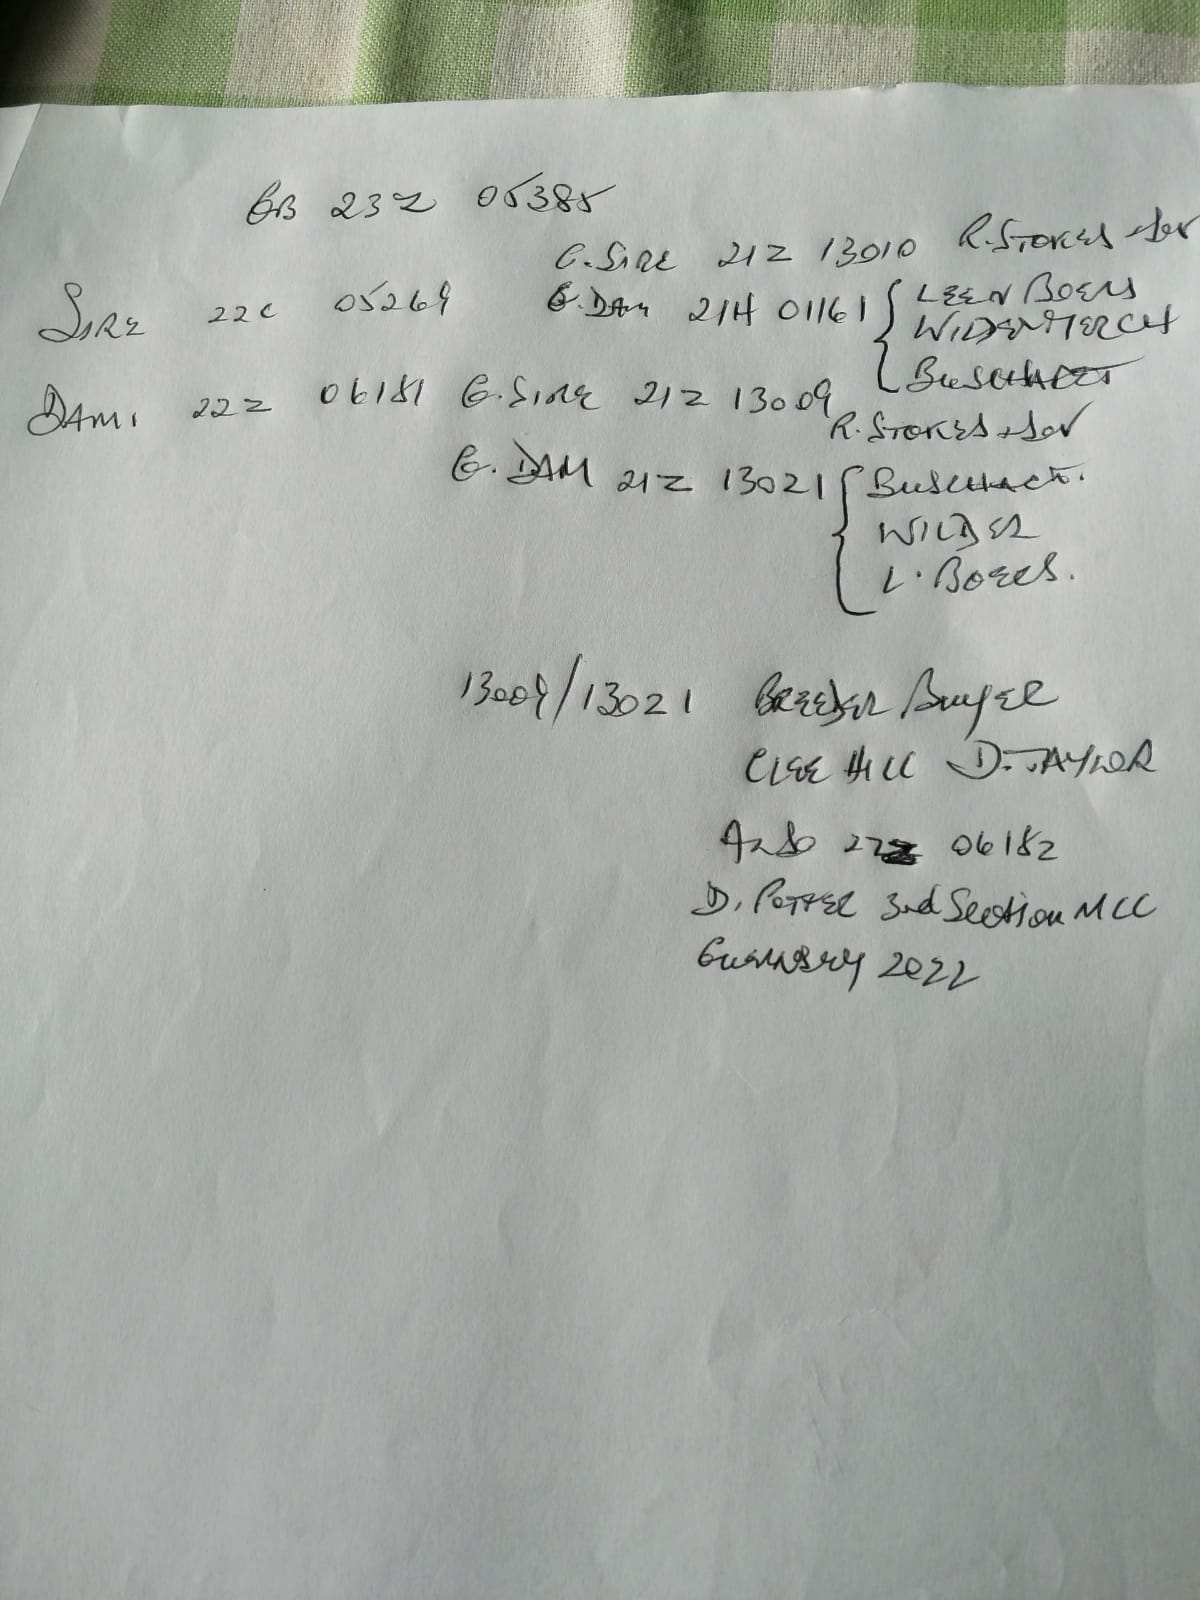 GB 23Z 05385
G. SIRE 21Z 13010 R. STOKES + SON
SIRE 22C 05269 G. DAM 21H 01161 { LEEN BOERS
WILDEMEERSCH
BUSCHAERT
DAM. 22Z 06181 G. SIRE 21Z 13009
R. STOKES + SON
G. DAM 21Z 13021 { BUSCHAERT.
WILDER
L. BOERS.
13009/13021 BREEDER/BUYER
CLEE HILL D. TAYLOR
ALSO 22Z 06182
D. POTTER 3rd Section MCC
GUERNSEY 2022